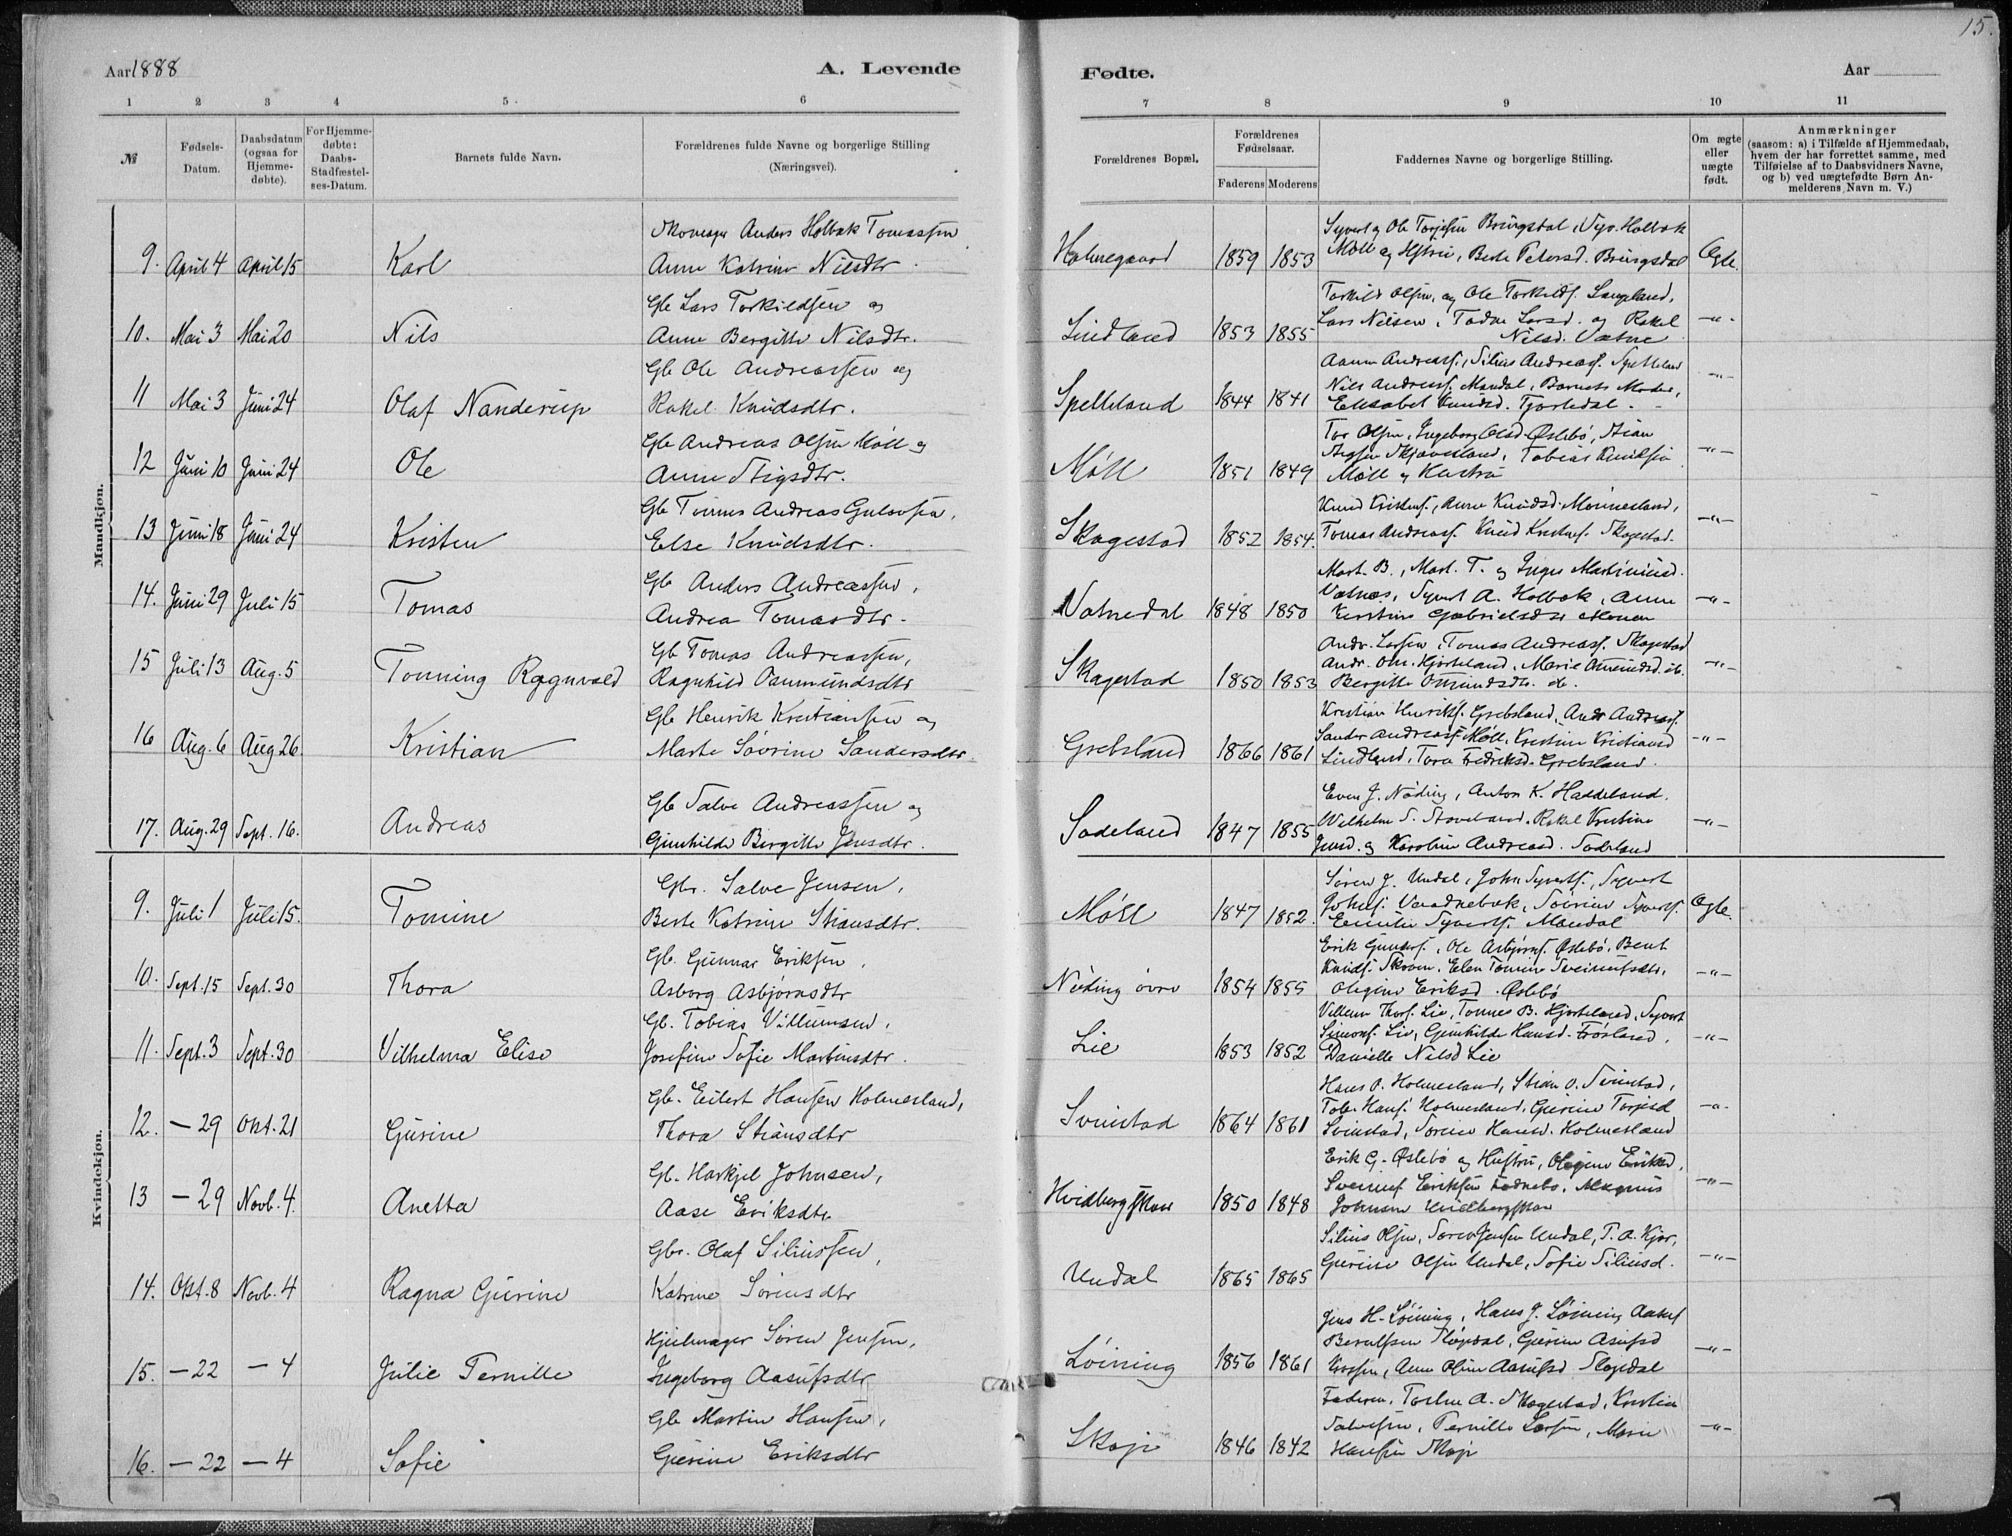 15.
Aar 1888
A. Levende
Fødte.
Aar
1 2 3 4 5 6
7 8 9 10 11
№
Fødsels-
Datum.
Daabsdatum
(ogsaa for
Hjemme-
døbte).
For Hjemme-
døbte:
Daabs-
Stadfæstel-
ses-Datum.
Barnets fulde Navn.
Forældrenes fulde Navne og borgerlige Stilling
(Næringsvei).
Forældrenes Bopæl.
Forældrenes
Fødselsaar.
Faderens Moderens
Faddernes Navne og borgerlige Stilling.
Om ægte
eller
uægte
født.
Anmærkninger
(saasom: a) i Tilfælde af Hjemmedaab,
hvem der har forrettet samme, med
Tilføielse af to Daabsvidners Navne,
og b) ved uægtefødte Børn An-
melderens Navn m. V.)
Mandkjøn.
9. April 4 April 15 Karl
Skomager Anders Holbæk Tomassen
Anne Katrine Nilsdtr.
Holmegaard 1859 1853
Syvert og Ole Torjesen Bringsdal, Holbæk
Møll og Hstru, Berte Petersd. Bringsdal
Ægte.
10. Mai 3 Mai 20 Nils
Gb Lars Torkildsen og
Anne Bergitte Nilsdtr.
Lindland 1853 1855
Torkild Olsen, og Ole Torkilds. Langeland,
Lars Nilsen, Larsd. og Rakel
Nilsd. Vatne
-"-
11 Mai 3 Juni 24 Olaf Nanderup
Gb Ole Andreassen og
Rakel Knudsdtr.
Spelleland 1844 1841
Andreass., Silius Andreass. Spelleland
Nils Andreass. Mandal, Barnets Moder,
Elisabet Knudsd. Fjortedal.
-"-
12 Juni 10 Juni 24 Ole
Gb Andreas Olsen Møll og
Anne Stigsdtr.
Møll 1851 1849
Tor Olsen, Ingeborg Olsd Øslebø, Stian
Skjævesland, Tobias Knudsen
Møll og Hustru
-"-
13 Juni 18 Juni 24 Kristen
Gb Tomas Andreas Gulovsen,
Else Knudsdtr.
Skagestad 1852 1854.
Knud Kristens., Anne Knudsd. Monnesland,
Tomas Andreass. Knud Kristens. Skagestad.
-"-
14. Juni 29 Juli 15 Tomas
Gb Anders Andreassen,
Andrea Tomasdtr.
Vatnedal 1848 1850
Mart. B., Mart. T. og Inger Martiniusd.
Valnæs, Syvert A. Holbæk, Anne
Kirstine Gabrielsdtr Monen
-"-
15 Juli 13 Aug. 5 Tonning Ragnvald
Gb Tomas Andreassen,
Ragnhild Aanmundsdtr
Skagestad 1850 1853
Andr. Larsen, Tomas Andreass. Skagestad
Andr. Om. Hjorteland, Marie Omundsd. do.
Bergitte Omundsdtr. do.
-"-
16 Aug. 6 Aug 26 Kristian
Gb Henrik Kristiansen og
Marte Sovrine Sandersdtr.
Grebsland 1866 1861
Kristian Henriks. Grebsland, Andr Andreass.
Sander Andreass Møll, Kristine Kristiansd
Lindland, Tora Fredriksd. Grebsland.
-"-
17. Aug. 29 Sept. 16. Andreas
Gb Salve Andreassen og
Gunhilde Bergitte Jensdtr.
Sodeland 1847 1855
Even J. Nöding, Anton K. Haddeland.
Wilhelm S. Stoveland. Rakel Kristine
Jensd. og Karoline Andreasd. Sodeland
-"-
Kvindekjøn.
9. Juli 1 Juli 15. Tomine
Gbr. Salve Jensen,
Berte Katrine Stiansdtr.
Møll 1847 1852.
Søren J. Undal, John Syverts., Syvert
Johns. Vaadnebæk, Sovrine Syverts.
Emilie Syverts. Mandal
Ægte.
10. Sept. 15 Sept. 30 Thora
Gb. Gunnar Eriksen,
Asborg Asbjørnsdtr
Nöding övre 1854 1855
Erik Gunnars., Ole Asbjørns. Øslebø, Bent
Knuds. Skoven, Elen Tomine Sveinungsdtr,
Olegine Eriksd. Øslebø
-"-
11. Sept. 3 Sept. 30 Vilhelma Elise
Gb. Tobias Villumsen,
Josefine Sofie Martinsdtr.
Lie 1853 1852
Villum Thors. Lie, Tonnes B. Hjorteland, Syvert
Simons. Lie, Gunhilde Hansd. Frösland,
Danielle Nilsd Lie
-"-
12. — 29 Okt. 21 Gurine
Gb. Eilert Hansen Holmesland,
Thora Stiansdtr
Svinstad 1864 1861
Hans O. Holmesland, Stian O. Svinstad,
Tob. Hans. Holmesland, Gurine Torjesd
Svinstad, Sorine Hansd. Holmesland
-"-
13 — 29 Novb. 4. Anetta
Gb. Harkjel Johnsen,
Aase Eriksdtr
Hvidbergskar 1850 1848
Erik G. Øslebø og Hustru, Olegine Eriksd,
Eriksen Fodnebø, Magnus
Johnsen Hvidbergskar
-"-
14. Okt. 8 Novb. 4 Ragna Gurine
Gbr. Olaf Siliussen,
Katrine Sorensdtr
Undal 1865 1865
Silius Olsen, Soren Jensen Undal, T. A. Kjær,
Gurine Olsen Undal, Sofie Siliusd.
-"-
15. — 22 — 4 Julie Pernille
Hjulmager Søren Jensen,
Ingeborg Aasulfsdtr
Löining 1856 1861
Jens H. Löining, Hans J. Löining, Aasulf
Bernt
Olsen Aasulfsd Sløgdal
-"-
16. — 22 — 4 Sofie
Gb Martin Hansen,
Gurine Eriksdtr
Skoje 1846 1842
Faderen, A. Skagestad, Kristian
Salvesen, Pernille Larsen, Marie
Hansen Skoje
-"-